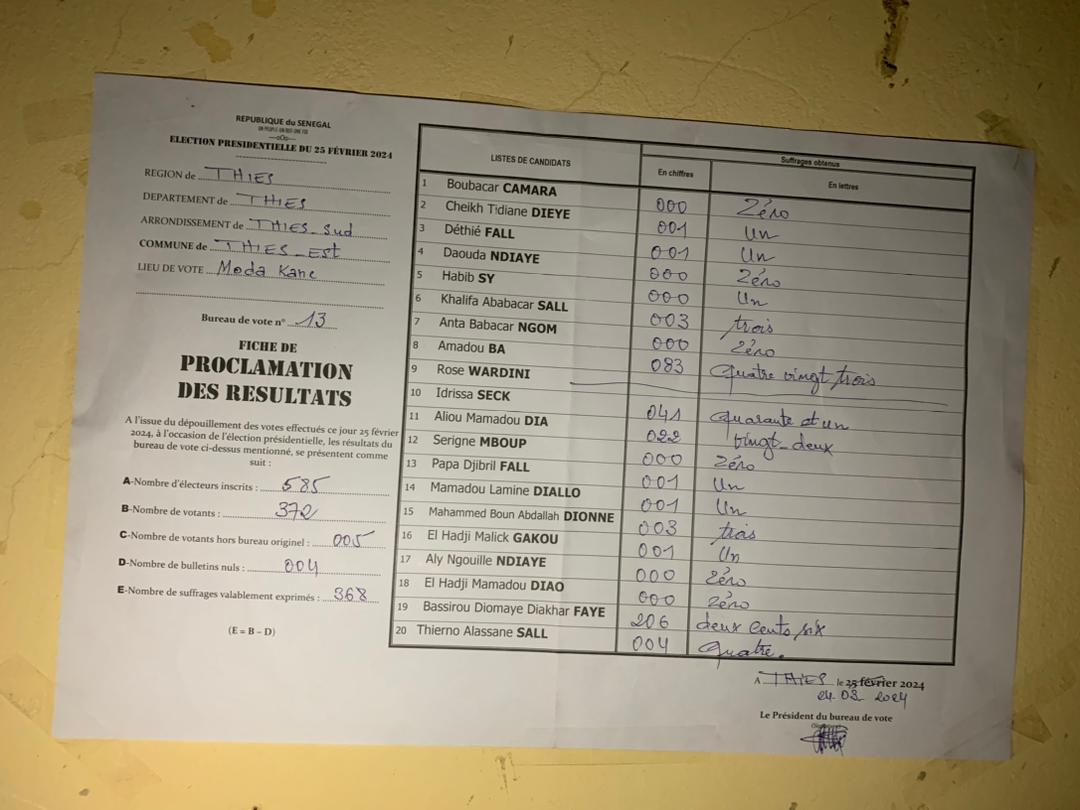 REPUBLIQUE du SENEGAL
UN PEUPLE-UN BUT-UNE FOI
ELECTION PRESIDENTIELLE DU 25 FÉVRIER 2024
REGION de THIES
DEPARTEMENT de THIES
ARRONDISSEMENT de THIES-Sud
COMMUNE de THIES-Est
LIEU DE VOTE Moda Kane
Bureau de vote n° 13
FICHE DE
PROCLAMATION
DES RESULTATS
A l'issue du dépouillement des votes effectués ce jour 25 février
2024, à l'occasion de l'élection présidentielle, les résultats du
bureau de vote ci-dessus mentionné, se présentent comme
suit :
A-Nombre d'électeurs inscrits : 585
B-Nombre de votants : 372
C-Nombre de votants hors bureau originel : 005
D-Nombre de bulletins nuls : 004
E-Nombre de suffrages valablement exprimés : 368
(E = B – D)
LISTES DE CANDIDATS Suffrages obtenus
En chiffres En lettres
1 Boubacar CAMARA 000 Zéro
2 Cheikh Tidiane DIEYE 001 Un
3 Déthié FALL 001 Un
4 Daouda NDIAYE 000 Zéro
5 Habib SY 000 Un
6 Khalifa Ababacar SALL 003 trois
7 Anta Babacar NGOM 000 Zéro
8 Amadou BA 083 Quatre vingt trois
9 Rose WARDINI
10 Idrissa SECK 041 Quarante et un
11 Aliou Mamadou DIA 022 Vingt-deux
12 Serigne MBOUP 000 Zéro
13 Papa Djibril FALL 001 Un
14 Mamadou Lamine DIALLO 001 Un
15 Mahammed Boun Abdallah DIONNE 003 trois
16 El Hadji Malick GAKOU 001 Un
17 Aly Ngouille NDIAYE 000 Zéro
18 El Hadji Mamadou DIAO 000 Zéro
19 Bassirou Diomaye Diakhar FAYE 206 deux cents six
20 Thierno Alassane SALL 004 quatre.
A THIES le 25 février 2024
24.03.2024
Le Président du bureau de vote